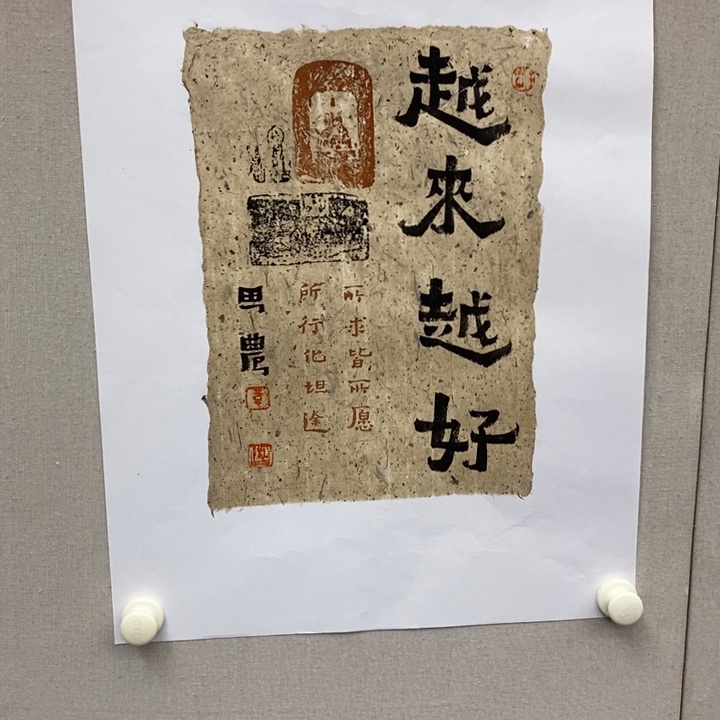 越來越好
所求皆所愿
所行化坦途